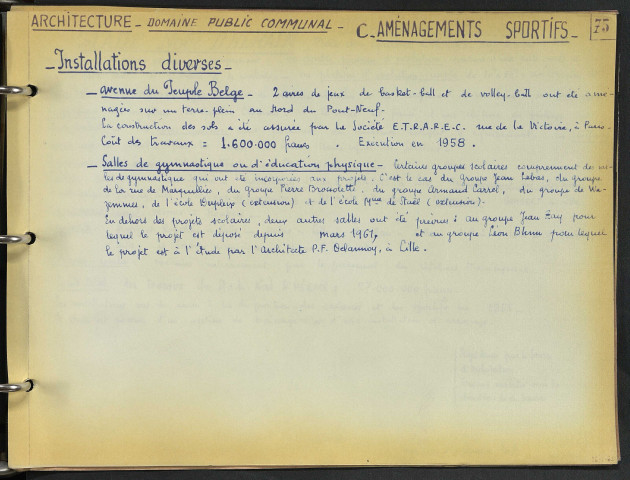 ARCHITECTURE - DOMAINE PUBLIC COMMUNAL - C - AMÉNAGEMENTS SPORTIFS - 75
- Installations diverses -
- avenue du Peuple Belge - 2 aires de jeux de basket-ball et de volley-ball ont été amé-
nagées sur un terre-plein au Nord du Pont-Neuf.
La construction des sols a été assurée par la Société E.T.R.A.R.E.C. rue de la Victoire, à Paris.
Coût des travaux = 1.600.000 francs. Exécution en 1958.
- Salles de gymnastique ou d'éducation physique - Certains groupes scolaires comprennent des sal-
les de gymnastique qui ont été incorporées aux projets. C'est le cas du groupe Jean Lebas, du groupe
de la rue de Marquillies, du groupe Pierre Brossolette, du groupe Armand Carrel, du groupe de Wa-
zemmes, de l'école Dupleix (extension) et de l'école Mme de Staël (extension).
En dehors des projets scolaires, deux autres salles ont été prévues : au groupe Jean Zay pour
lequel le projet est déposé depuis mars 1961, et au groupe Léon Blum pour lequel
le projet est à l'étude par l'Architecte P.F. Delannoy, à Lille.